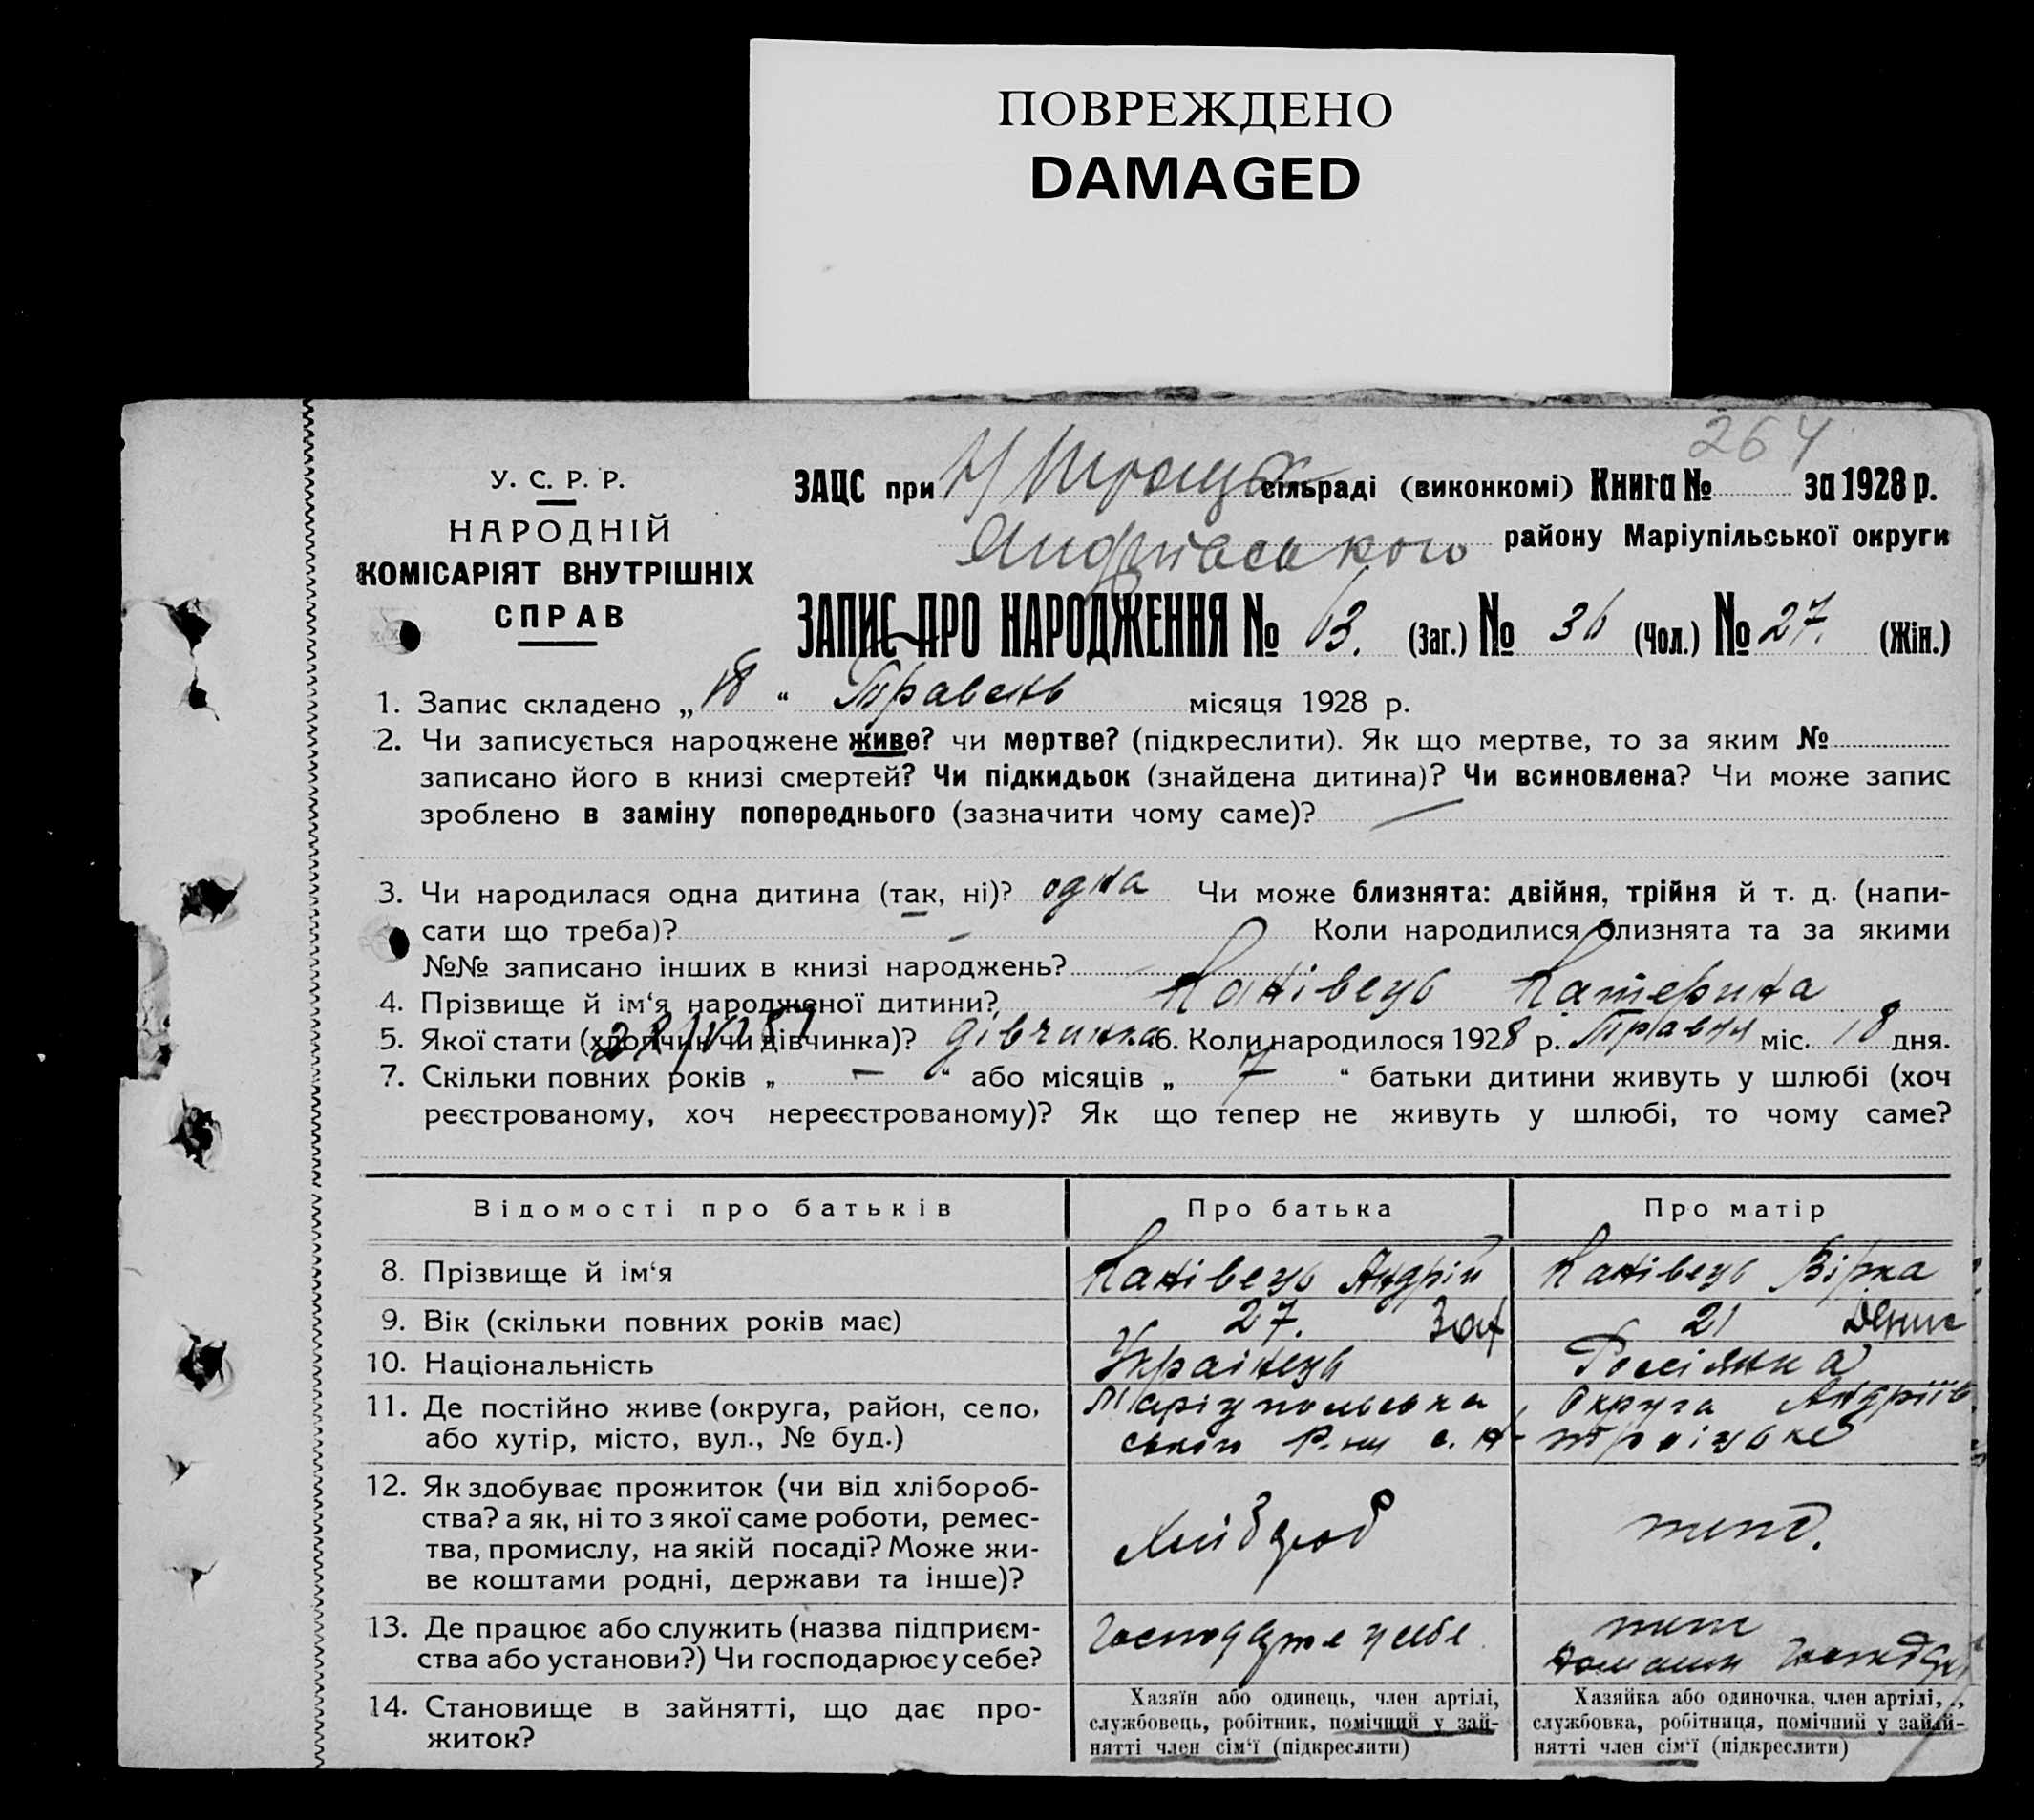 ПОВРЕЖДЕНО
DAMAGED
264
У. С. Р. Р.
НАРОДНІЙ
КОМІСАРІЯТ ВНУТРІШНІХ
СПРАВ
ЗАЦС при сільраді (виконкомі) Книга № за 1928 р.
району Маріупільської округи
ЗАПИС ПРО НАРОДЖЕННЯ № 63. (Заг.) № 36 (Чол.) № 27. (Жін.)
1. Запис складено „ 18 “ Травень місяця 1928 р.
2. Чи записується народжене живе? чи мертве? (підкреслити). Як що мертве, то за яким №
записано його в книзі смертей? Чи підкидьок (знайдена дитина)? Чи всиновлена? Чи може запис
зроблено в заміну попереднього (зазначити чому саме)? —
3. Чи народилася одна дитина (так, ні)? одна Чи може близнята: двійня, трійня й т. д. (напи-
сати що треба)? - Коли народилися близнята та за якими
№№ записано інших в книзі народжень?
4. Прізвище й ім‘я народженої дитини? Канівець Катерина
5. Якої стати (хлопчик чи дівчинка)? дівчинка 6. Коли народилося 1928 р. Травня міс. 18 дня.
7. Скільки повних років „ — “ або місяців „ 7 “ батьки дитини живуть у шлюбі (хоч
реєстрованому, хоч нереєстрованому)? Як що тепер не живуть у шлюбі, то чому саме?
Відомості про батьків Про батька Про матір
8. Прізвище й ім‘я Канівець Андрій Канівець Вірка
9. Вік (скільки повних років має) 27. Зах 21 Денис
10. Національність Українець Россіянка
11. Де постійно живе (округа, район, село, Маріупольська округа Андріїв
або хутір, місто, вул., № буд.) ського Р-ну с. Н-троіцьке
12. Як здобуває прожиток (чи від хлібороб-
ства? а як, ні то з якої саме роботи, ремес-
тва, промислу, на якій посаді? Може жи-
ве коштами родні, держави та інше)?
Хлібороб
13. Де працює або служить (назва підприєм-
ства або установи?) Чи господарює у себе?
Господарює у себе
14. Становище в зайнятті, що дає про-
житок?
Хазяїн або одинець, член артілі,
службовець, робітник, помічний у зай-
нятті член сім‘ї (підкреслити)
Хазяйка або одиночка, член артілі,
службовка, робітниця, помічний у зай-
нятті член сім‘ї (підкреслити)